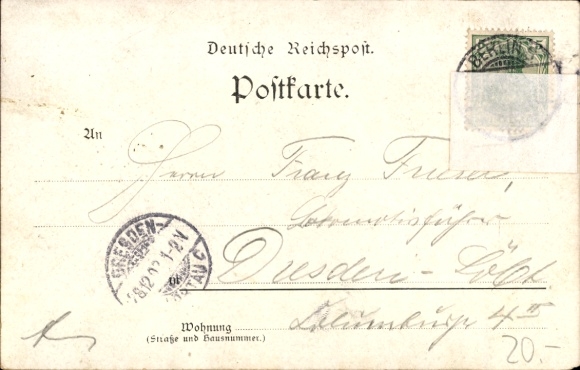 Deutsche Reichspost.
Postkarte.
BERLIN
An
Herrn Franz Frieser,
Lokomotivführer
DRESDEN-
28.12.02 1-2V
TAU C
in
Dresden-Löbt.
4 II
Wohnung
(Straße und Hausnummer.)
20.-